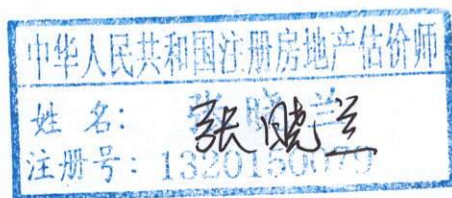 中华人民共和国注册房地产估价师
姓 名: 张晓兰
注册号: 1320150079